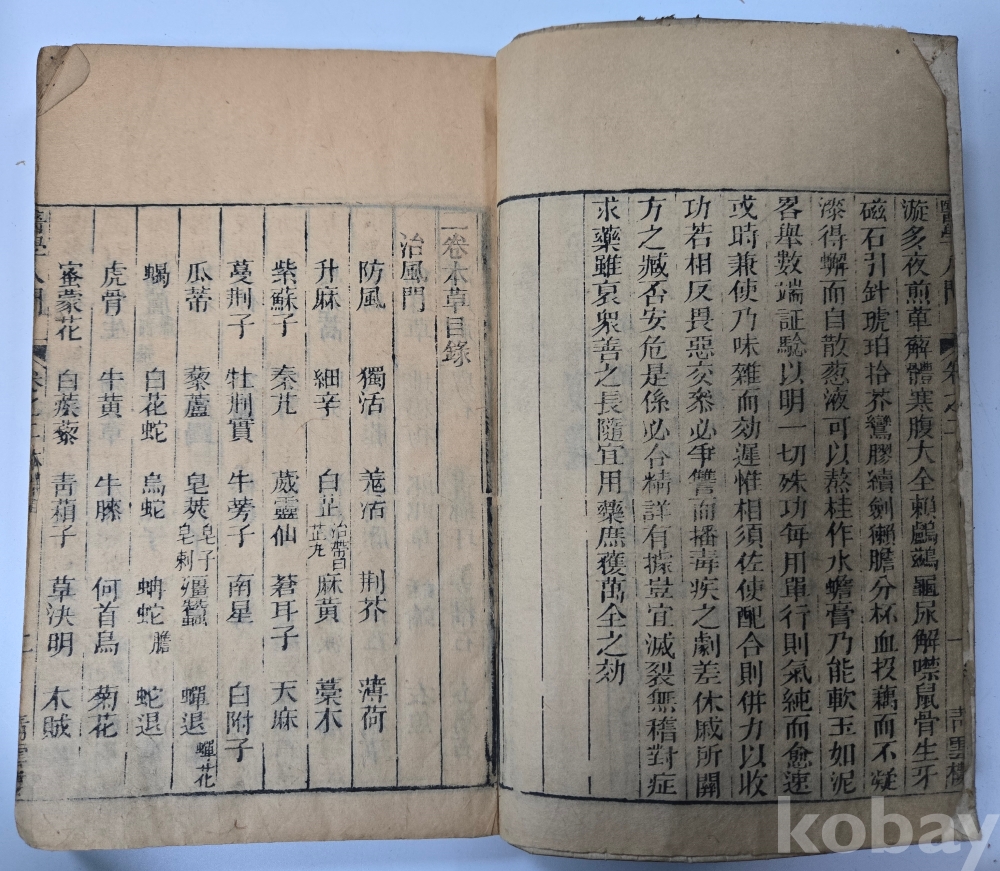 漩多夜煎萆薢體寒腹大全賴鸕鷀龜尿解噤鼠骨生牙
磁石引針琥珀拾芥鸞膠續劍獺膽分杯血投藕而不凝
漆得蠏而自散葱液可以熬桂作水蟾膏乃能軟玉如泥
畧舉數端証驗以明一切殊功每用單行則氣純而愈速
或时兼使乃味雜而効遲惟相須佐使配合則併力以收
功若相反畏惡交叅必爭讐而播毒疾之劇差休戚所關
方之臧否安危是係必合精詳有據豈宜滅裂無稽對症
求藥雖哀衆善之長隨宜用藥庶獲萬全之効
青雲樓
二卷本草目錄
治風門
防風 獨活 羗活 荆芥 薄荷
升麻 細辛 白芷 治帶白芷丸 麻黃 藁本
紫蘇子 秦艽 葳靈仙 蒼耳子 天麻
蔓荆子 牡荆實 牛蒡子 南星 白附子
瓜蒂 藜蘆 皂莢 皂子皂刺 殭蠶 蟬退 蟬花
蝎 白花蛇 烏蛇 蚺蛇膽 蛇退
虎骨 牛黃 牛膝 何首烏 菊花
蜜蒙花 白蒺藜 靑葙子 草決明 木賊
kobay